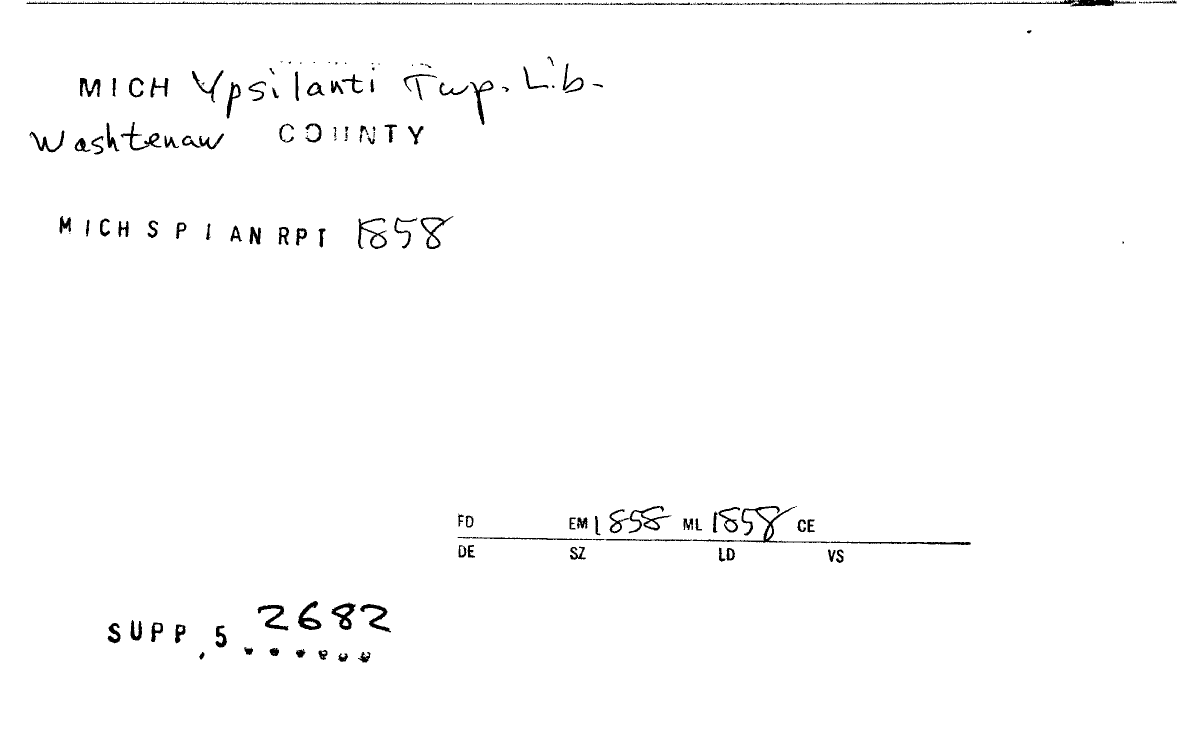 MICH Ypsilanti Twp. Lib.
Washtenaw COUNTY
MICH S P I AN RPT 1858
FD EM 1858 ML 1858 CE
DE SZ LD VS
SUPP, 5 2682